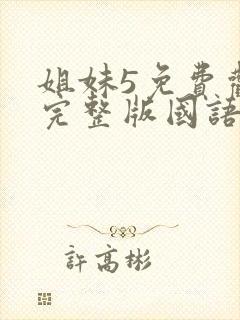 姐妹5免費
完整版國語
許高彬